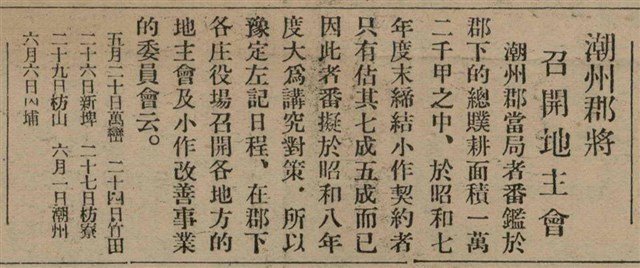 潮州郡將
召開地主會
潮州郡當局者番鑑於
郡下的總贌耕面積一萬
二千甲之中、於昭和七
年度末締結小作契約者
只有佔其七成五成而已
因此者番擬於昭和八年
度大爲講究對策。所以
豫定左記日程、在郡下
各庄役場召開各地方的
地主會及小作改善事業
的委員會云。
五月二十日萬巒 二十四日竹田
二十六日新埤 二十七日枋寮
二十九日枋山 六月一日潮州
六月六日內埔